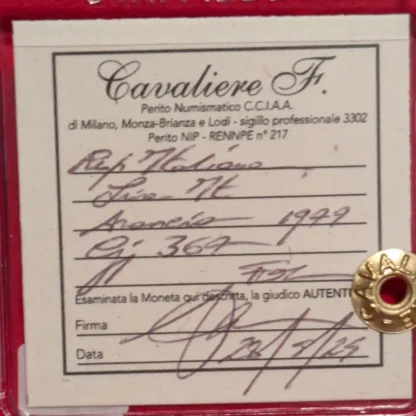 Cavaliere F.
Perito Numismatico C.C.I.A.A.
di Milano, Monza-Brianza e Lodi - sigillo professionale 3302
Perito NIP - RENNPE n° 217
Rep. Italiana
Lira It.
Arancia 1949
Gj 364
Esaminata la Moneta qui descritta, la giudico AUTENTI
Firma
Data